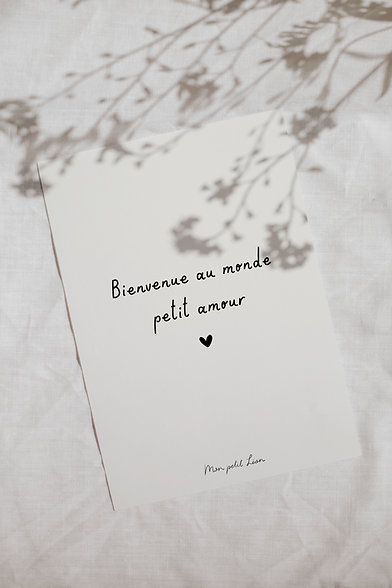 Bienvenue au monde
petit amour
Mon petit Léon